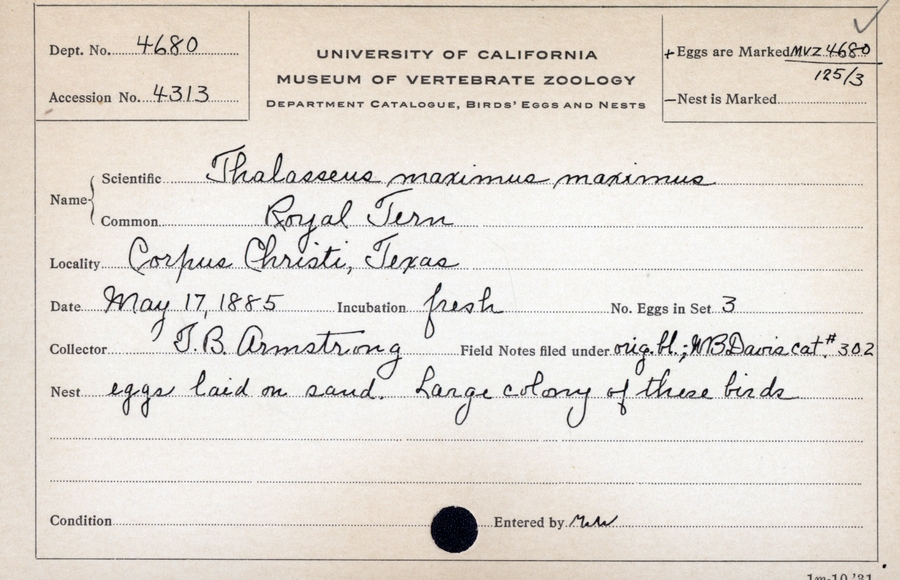 Dept. No. 4680
Accession No. 4313
UNIVERSITY OF CALIFORNIA
MUSEUM OF VERTEBRATE ZOOLOGY
DEPARTMENT CATALOGUE, BIRDS' EGGS AND NESTS
+ Eggs are Marked MVZ 4680
125/3
— Nest is Marked
Name { Scientific Thalasseus maximus maximus
Common Royal Tern
Locality Corpus Christi, Texas
Date May 17, 1885 Incubation fresh No. Eggs in Set 3
Collector J.B. Armstrong Field Notes filed under orig. bl.; WBDavis cat. # 302
Nest eggs laid on sand. Large colony of these birds
Condition Entered by
1m-10 '31